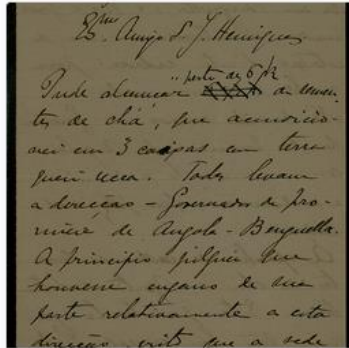 Ex.mo Amigo S. J. Henriques
Pude alcançar "perto de 5 K de semen-
tes de chá, que acondicio-
nei em 3 caixas em terra
quasi secca. Todas levam
a direcção – Governador da pro-
vincia de Angola – Benguella.
A principio julguei que
houvesse engano de sua
parte relativamente a esta
direcção, visto que a sede